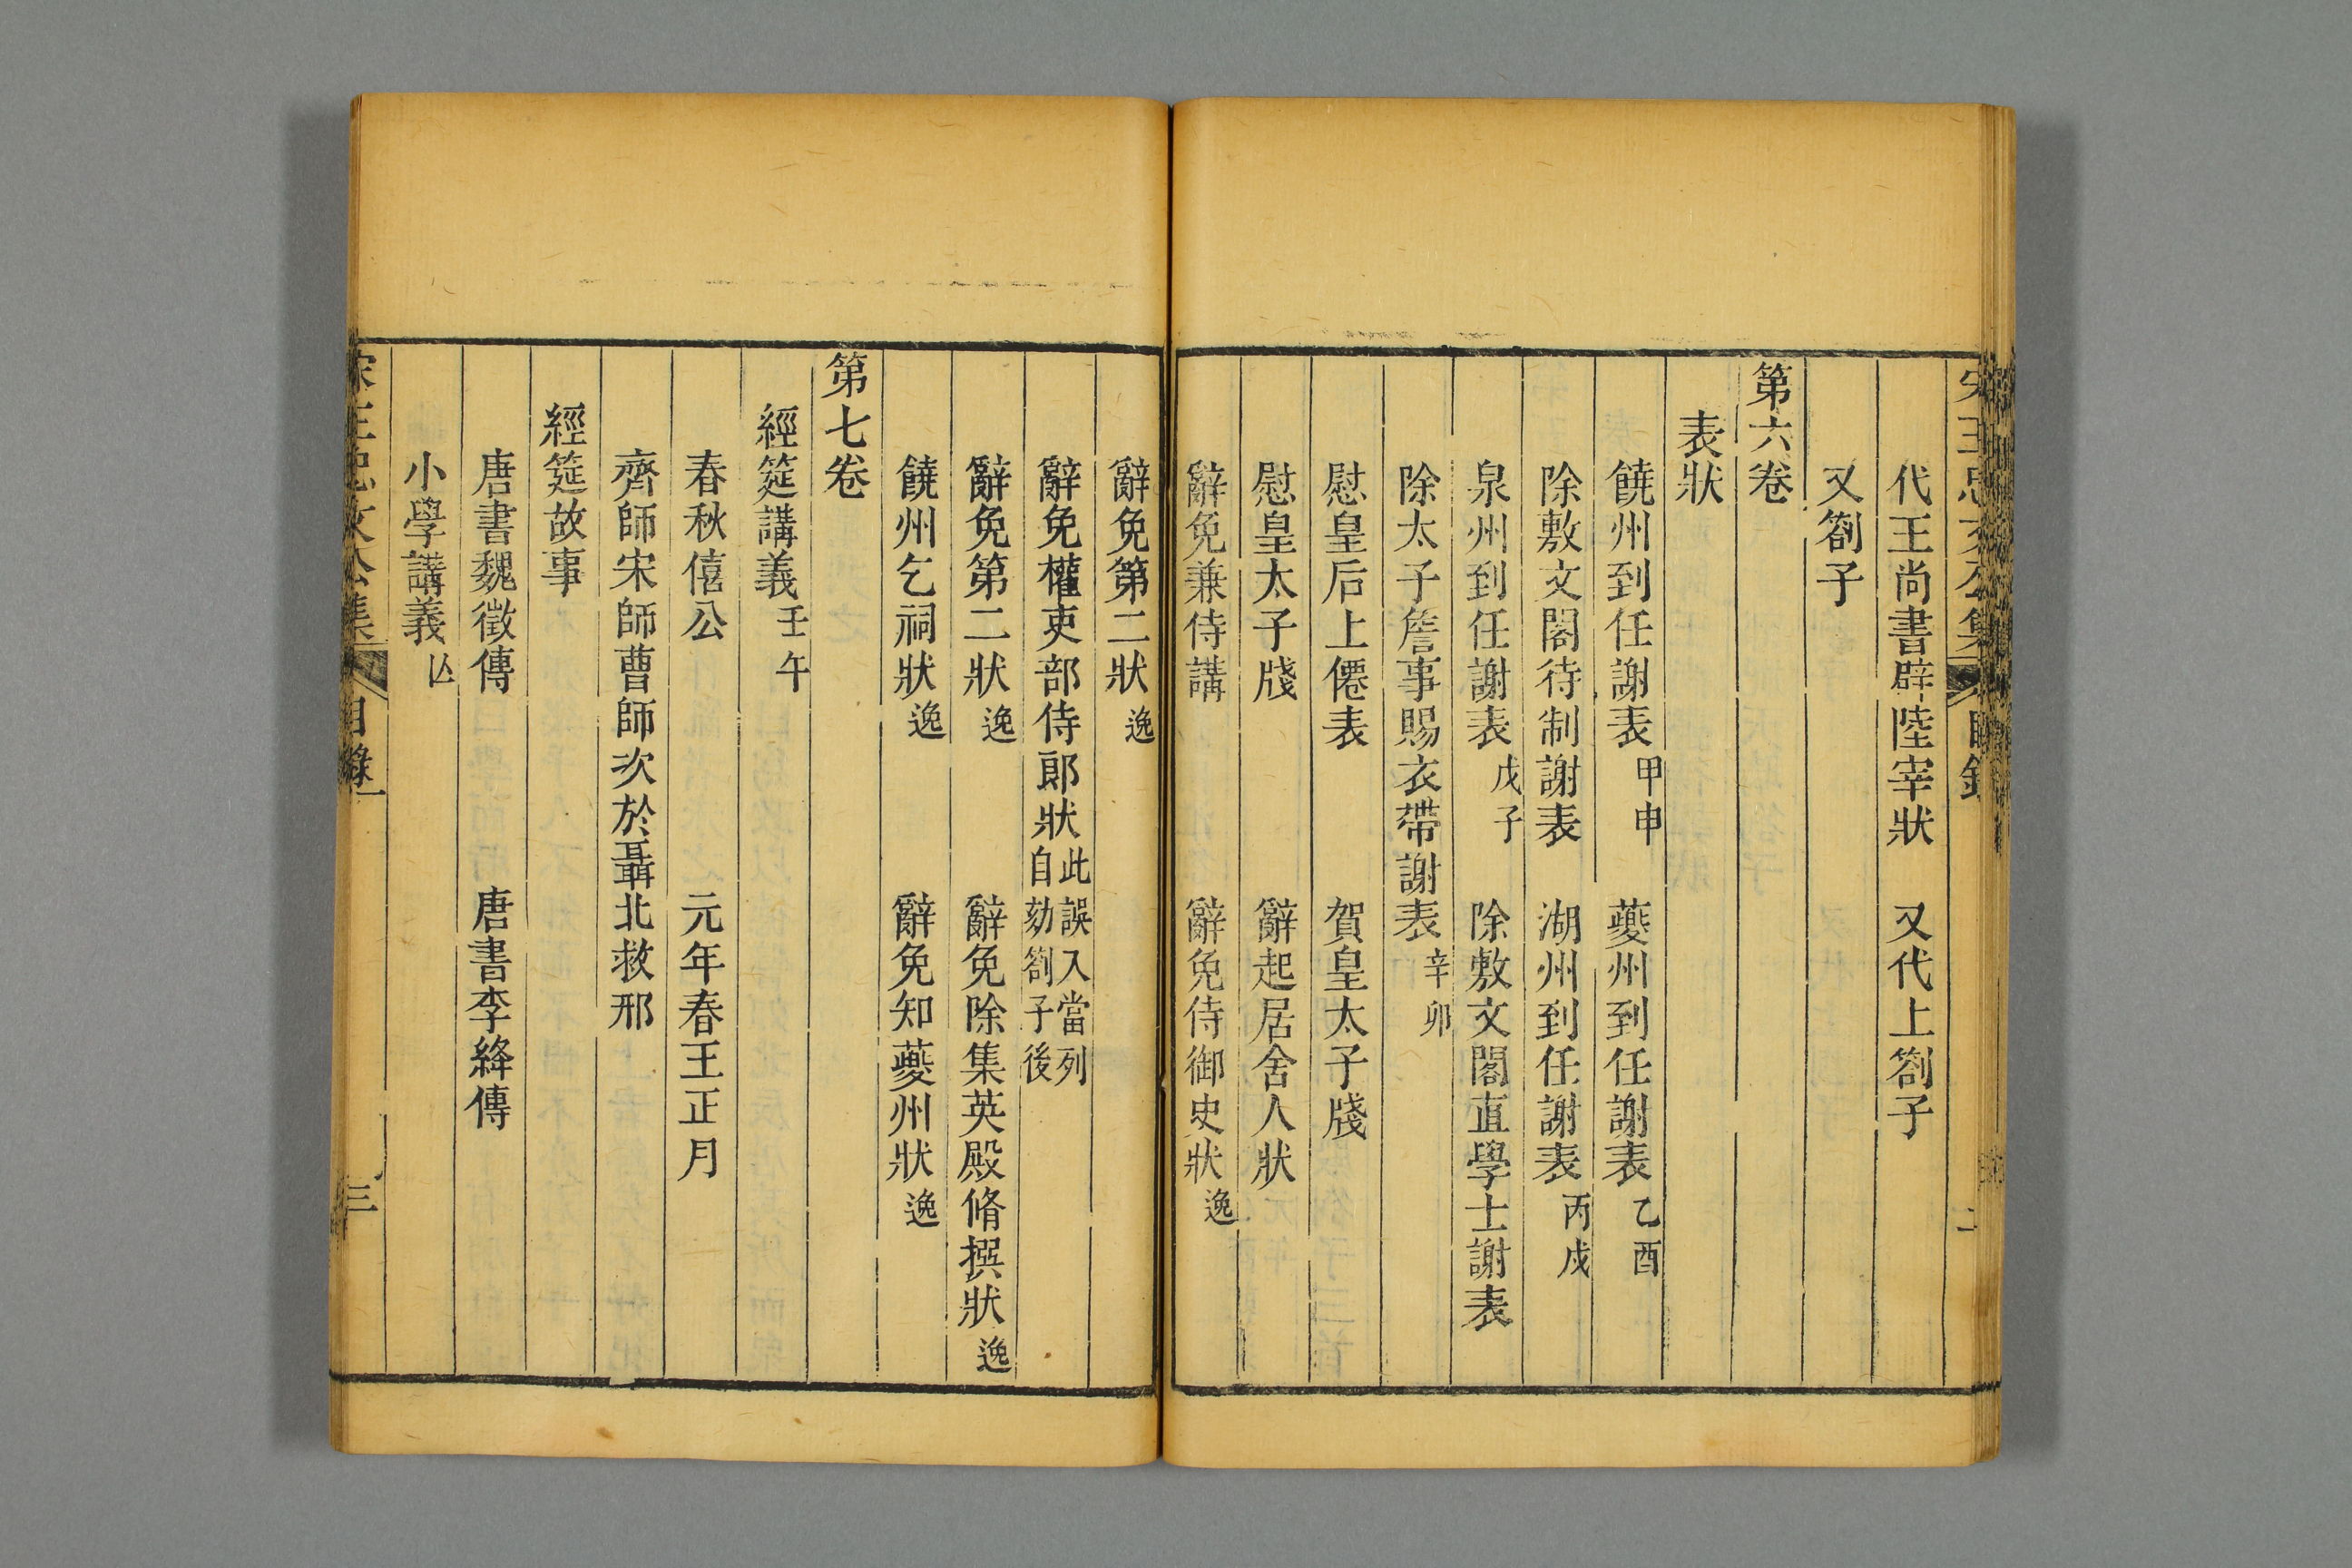 宋王忠文公集 目錄
代王尚書辟陸宰狀 又代上劄子
又劄子
第六卷
表狀
饒州到任謝表 甲申 夔州到任謝表 乙酉
除敷文閣待制謝表 湖州到任謝表 丙戌
泉州到任謝表 戊子 除敷文閣直學士謝表
除太子詹事賜衣帶謝表 辛卯
慰皇后上僊表 賀皇太子牋
慰皇太子牋 辭起居舍人狀
辭免兼侍講 辭免侍御史狀 逸
辭免第二狀 逸
辭免權吏部侍郞狀 此誤入當列
自劾劄子後
辭免第二狀 逸 辭免除集英殿脩撰狀 逸
饒州乞祠狀 逸 辭免知夔州狀 逸
第七卷
經筵講義 壬午
春秋僖公 元年春王正月
齊師宋師曹師次於聶北救邢
經筵故事
唐書魏徵傳 唐書李絳傳
小學講義
宋王忠文公集 目錄 三